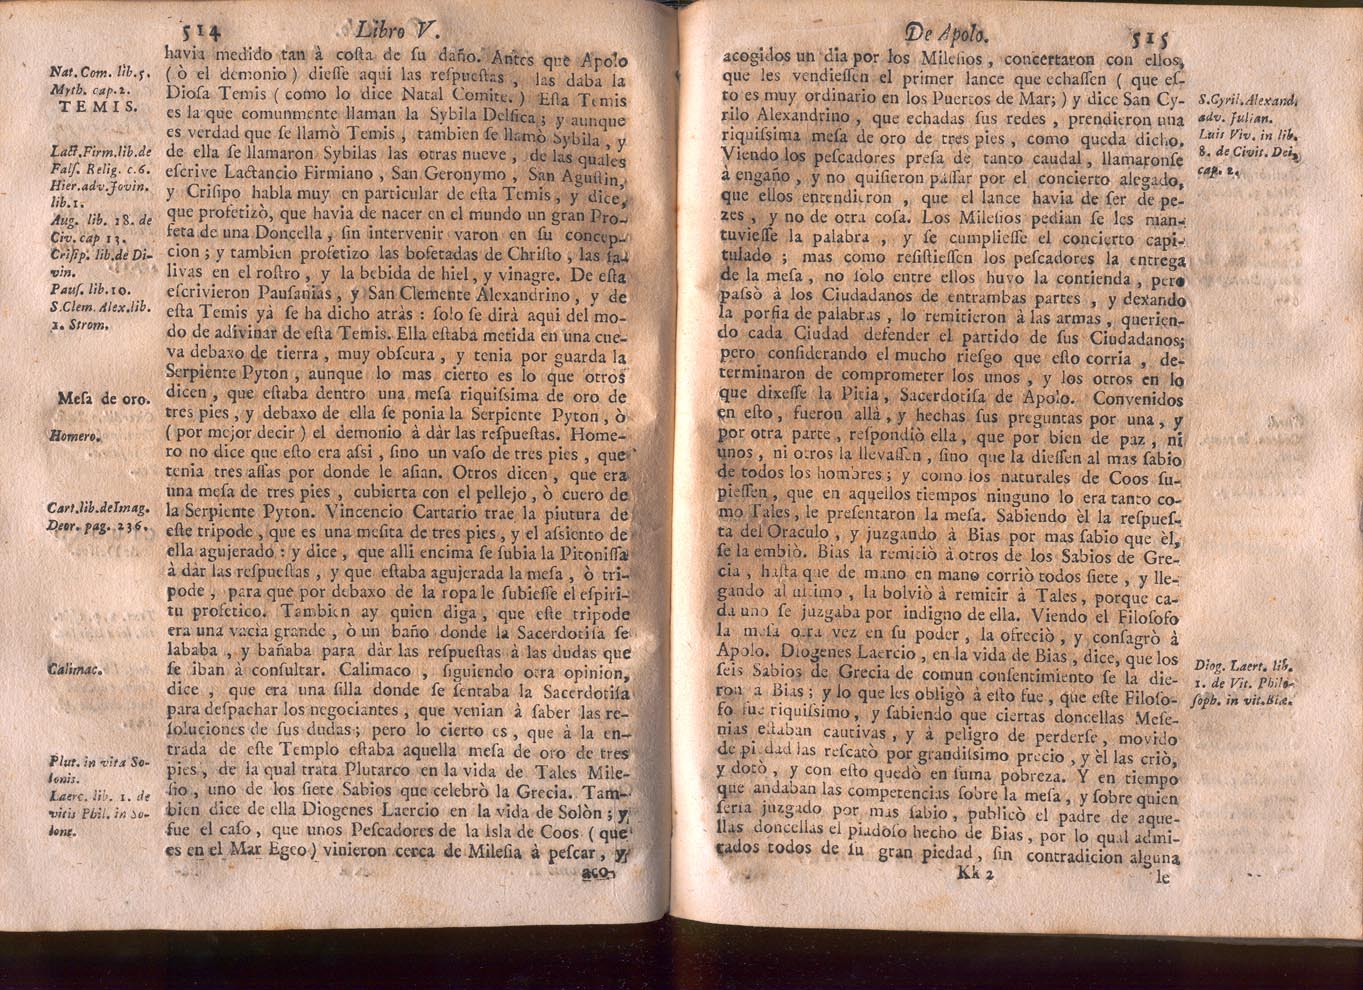 514 Libro V.
havia medido tan à coſta de ſu daño. Antes que Apolo
(ò el demonio) dieſſe aqui las reſpueſtas, las daba la
Dioſa Temis (como lo dice Natal Comite.) Eſta Temis
es la que comunmente llaman la Sybila Delfica; y aunque
es verdad que ſe llamò Temis, tambien ſe llamò Sybila, y
de ella ſe llamaron Sybilas las otras nueve, de las quales
eſcrive Lactancio Firmiano, San Geronymo, San Aguſtin,
y Criſipo habla muy en particular de eſta Temis, y dice,
que profetizò, que havia de nacer en el mundo un gran Pro-
feta de una Doncella, ſin intervenir varon en ſu concep-
cion; y tambien profetizo las bofetadas de Chriſto, las ſa-
livas en el roſtro, y la bebida de hiel, y vinagre. De eſta
eſcrivieron Pauſanias, y San Clemente Alexandrino, y de
eſta Temis yà ſe ha dicho atràs: ſolo ſe dirà aqui del mo-
do de adivinar de eſta Temis. Ella eſtaba metida en una cue-
va debaxo de tierra, muy obſcura, y tenia por guarda la
Serpiente Pyton, aunque lo mas cierto es lo que otros
dicen, que eſtaba dentro una meſa riquiſsima de oro de
tres pies, y debaxo de ella ſe ponia la Serpiente Pyton, ò
(por mejor decir) el demonio à dàr las reſpueſtas. Home-
ro no dice que eſto era aſsi, ſino un vaſo de tres pies, que
tenia tres aſſas por donde le aſian. Otros dicen, que era
una meſa de tres pies, cubierta con el pellejo, ò cuero de
la Serpiente Pyton. Vincencio Cartario trae la pintura de
eſte tripode, que es una meſita de tres pies, y el aſsiento de
ella agujerado: y dice, que alli encima ſe ſubia la Pitoniſſa
à dàr las reſpueſtas, y que eſtaba agujerada la meſa, ò tri-
pode, para que por debaxo de la ropa le ſubieſſe el eſpiri-
tu profetico. Tambien ay quien diga, que eſte tripode
era una vacia grande, ò un baño donde la Sacerdotiſa ſe
lababa, y bañaba para dàr las reſpueſtas à las dudas que
ſe iban à conſultar. Calimaco, ſiguiendo otra opinion,
dice, que era una ſilla donde ſe ſentaba la Sacerdotiſa
para deſpachar los negociantes, que venian à ſaber las re-
ſoluciones de ſus dudas; pero lo cierto es, que à la en-
trada de eſte Templo eſtaba aquella meſa de oro de tres
pies, de la qual trata Plutarco en la vida de Tales Mile-
ſio, uno de los ſiete Sabios que celebrò la Grecia. Tam-
bien dice de ella Diogenes Laercio en la vida de Solòn; y
fue el caſo, que unos Peſcadores de la Isla de Coos (que
es en el Mar Egeo) vinieron cerca de Mileſia à peſcar, y
aco-
Nat. Com. lib. 5.
Myth. cap. 2.
TEMIS.
Lact. Firm. lib. de
Falſ. Relig. c. 6.
Hier. adv. Jovin.
lib. 1.
Aug. lib. 18. de
Civ. cap 13.
Criſip. lib. de Di-
vin.
Pauſ. lib. 10.
S. Clem. Alex. lib.
1. Strom.
Meſa de oro.
Homero.
Cart. lib. de Imag.
Deor. pag. 236.
Calimac.
Plut. in vita So-
lonis.
Laerc. lib. 1. de
vitis Phil. in So-
lone.
De Apolo. 515
acogidos un dia por los Mileſios, concertaron con ellos,
que les vendieſſen el primer lance que echaſſen (que eſ-
to es muy ordinario en los Puertos de Mar;) y dice San Cy-
rilo Alexandrino, que echadas ſus redes, prendieron una
riquiſsima meſa de oro de tres pies, como queda dicho.
Viendo los peſcadores preſa de tanto caudal, llamaronſe
à engaño, y no quiſieron paſſar por el concierto alegado,
que ellos entendieron, que el lance havia de ſer de pe-
zes, y no de otra coſa. Los Mileſios pedian ſe les man-
tuvieſſe la palabra, y ſe cumplieſſe el concierto capi-
tulado; mas como reſiſtieſſen los peſcadores la entrega
de la meſa, no ſolo entre ellos huvo la contienda, pero
paſsò à los Ciudadanos de entrambas partes, y dexando
la porfia de palabras, lo remitieron à las armas, querien-
do cada Ciudad defender el partido de ſus Ciudadanos;
pero conſiderando el mucho rieſgo que eſto corria, de-
terminaron de comprometer los unos, y los otros en lo
que dixeſſe la Pitia, Sacerdotiſa de Apolo. Convenidos
en eſto, fueron allà, y hechas ſus preguntas por una, y
por otra parte, reſpondiò ella, que por bien de paz, ni
unos, ni otros la llevaſſen, ſino que la dieſſen al mas ſabio
de todos los hombres; y como los naturales de Coos ſu-
pieſſen, que en aquellos tiempos ninguno lo era tanto co-
mo Tales, le preſentaron la meſa. Sabiendo èl la reſpueſ-
ta del Oraculo, y juzgando à Bias por mas ſabio que èl,
ſe la embiò. Bias la remitiò à otros de los Sabios de Gre-
cia, haſta que de mano en mano corriò todos ſiete, y lle-
gando al ultimo, la bolviò à remitir à Tales, porque ca-
da uno ſe juzgaba por indigno de ella. Viendo el Filoſofo
la meſa otra vez en ſu poder, la ofreciò, y conſagrò à
Apolo. Diogenes Laercio, en la vida de Bias, dice, que los
ſeis Sabios de Grecia de comun conſentimiento ſe la die-
ron a Bias; y lo que les obligò à eſto fue, que eſte Filoſo-
fo fue riquiſsimo, y ſabiendo que ciertas doncellas Meſe-
nias eſtaban cautivas, y à peligro de perderſe, movido
de piedad las reſcatò por grandiſsimo precio, y èl las criò,
y dotò, y con eſto quedò en ſuma pobreza. Y en tiempo
que andaban las competencias ſobre la meſa, y ſobre quien
ſeria juzgado por mas ſabio, publicò el padre de aque-
llas doncellas el piadoſo hecho de Bias, por lo qual admi-
rados todos de ſu gran piedad, ſin contradicion alguna
Kk 2 le
S. Cyril. Alexand.
adv. Julian.
Luis Viv. in lib.
8. de Civit. Dei,
cap. 2.
Diog. Laert. lib.
1. de Vit. Philo-
ſoph. in vit. Biæ.